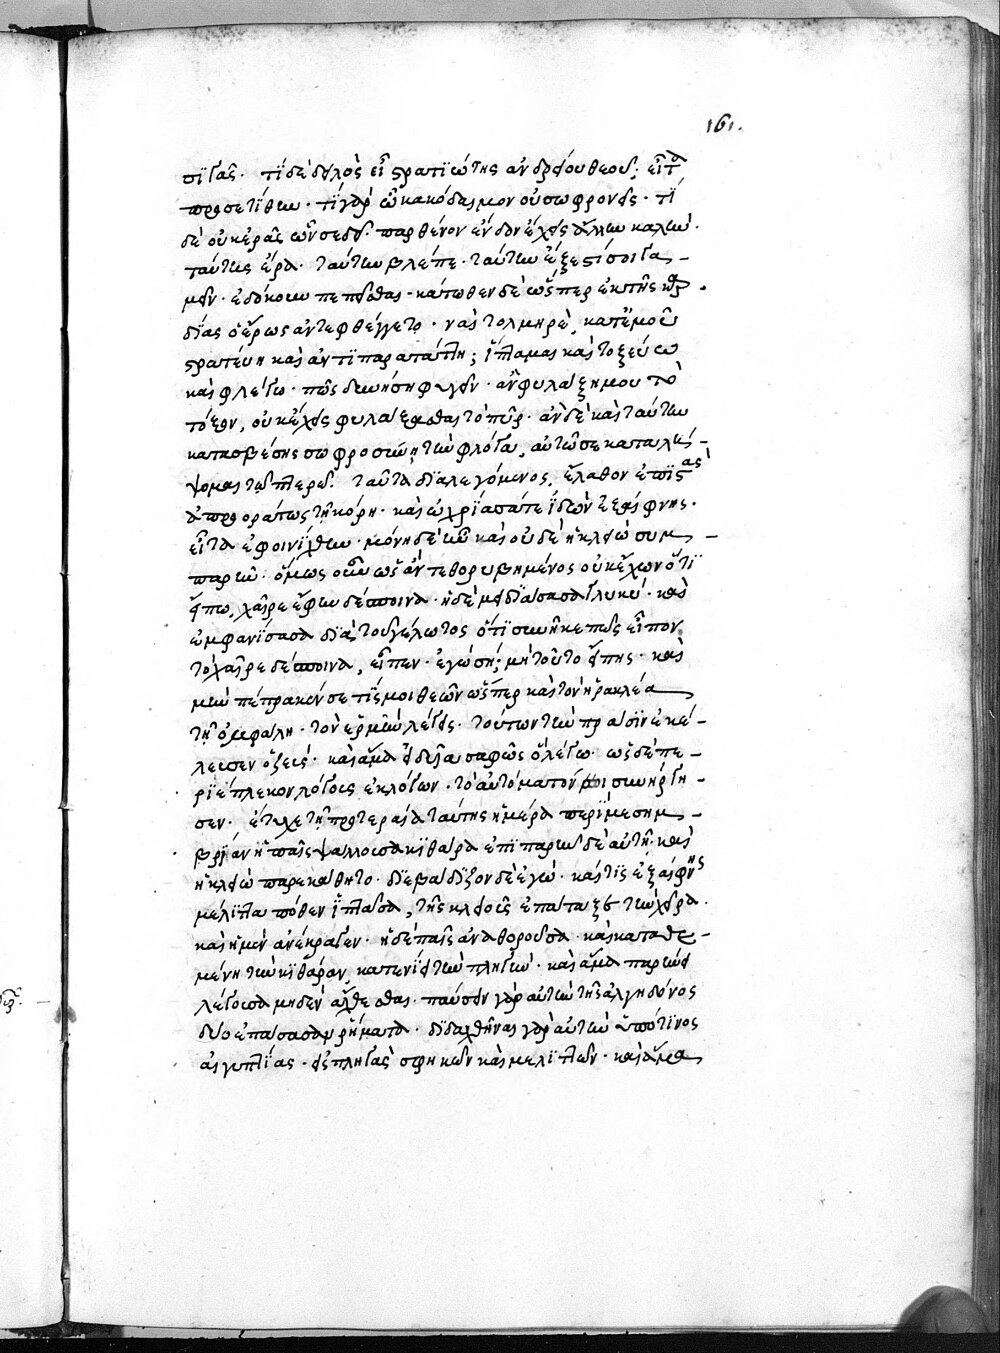 161.
σιγᾷς. τί δὲ δειλὸς εἶ στρατιώτης ἀνδρείου θεοῦ; εἶτα
προσετίθουν. τί γὰρ ὦ κακόδαιμον οὐ σωφρονεῖς. τί
δὲ οὐκ ἐρᾷς ὧν σε δεῖ. παρθένον ἔνδον ἔχεις ἄλλην καλήν.
ταύτης ἔρα. ταύτην βλέπε. ταύτην ἔξεστί σοι γα-
μεῖν. ἐδόκουν πεπεῖσθαι. κάτωθεν δὲ ὥσπερ ἐκ τῆς καρ
δίας ὁ ἔρως ἀντεφθέγγετο. ναὶ τολμηρὲ, κατ' ἐμοῦ
στρατεύῃ καὶ ἀντιπαρατάττῃ; ἵπταμαι καὶ τοξεύω
καὶ φλέγω. πῶς δυνήσῃ φυγεῖν. ἂν φυλάξῃ μου τὸ
τόξον, οὐκ ἔχεις φυλάξασθαι τὸ πῦρ. ἂν δὲ καὶ ταύτην
κατασβέσῃς σωφροσύνῃ τὴν φλόγα, αὐτῷ σε καταλή-
ψομαι τῷ πτερῷ. ταῦτα διαλεγόμενος, ἔλαθον ἐπιστὰς
ἀπροοράτως τῇ κόρῃ. καὶ ὠχρίασά τε ἰδὼν ἐξαίφνης.
εἶτα ἐφοινίχθην. μόνη δὲ ἦν καὶ οὐδὲ ἡ κλειὼ συμ-
παρῆν. ὅμως οὖν ὡς ἂν τεθορυβημένος οὐκ ἔχων ὅτι
εἴπω, χαῖρε ἔφην δέσποινα. ἡ δὲ μειδιάσασα γλυκύ. καὶ
ἐμφανίσασα διὰ τοῦ γέλωτος ὅτι συνῆκε πῶς εἶπον
τὸ χαῖρε δέσποινα, εἶπεν. ἐγὼ σή; μὴ τοῦτο εἴπῃς. καὶ
μὴν πέπρακέν σε τίς μοι θεῶν ὥσπερ καὶ τὸν ἡρακλέα
τῇ ὀμφάλῃ. τὸν ἑρμῆν λέγεις. τούτῳ τὴν πρᾶσιν ἐκέ-
λευσεν ὁ ζεύς. καὶ ἅμα ἐγέλασα σαφῶς ὃ λέγω. ὡς δὲ πε-
ριέπλεκον λόγους ἐκ λόγων. τὸ αὐτόματόν μοι συνήργη-
σεν. ἔτυχε τῇ προτεραίᾳ ταύτης ἡμέρᾳ περὶ μεσημ-
βρίαν ἡ παῖς ψάλλουσα κιθάρᾳ ἐπιπαρῆν δὲ αὐτῇ. καὶ
ἡ κλειὼ παρεκάθητο. διεβάδιζον δὲ ἐγώ. καί τις ἐξαίφνης
μέλιττα ποθεν ἱπτᾶσα, τῆς κλειοῦς ἐπάταξε τὴν χεῖρα.
καὶ ἡ μὲν ἀνέκραγεν. ἡ δὲ παῖς ἀναθοροῦσα. καὶ καταθε-
μένη τὴν κιθάραν, κατενόει τὴν πληγήν. καὶ ἅμα παρῄνει
λέγουσα μηδὲν ἄχθεσθαι. παύσειν γὰρ αὐτὴν τῆς ἀλγηδόνος
δύο ἐπᾴσασαν ῥήματα. διδαχθῆναι γὰρ αὐτὴν ὑπό τινος
αἰγυπτίας. εἰς πληγὰς σφηκῶν καὶ μελιττῶν. καὶ ἅμα